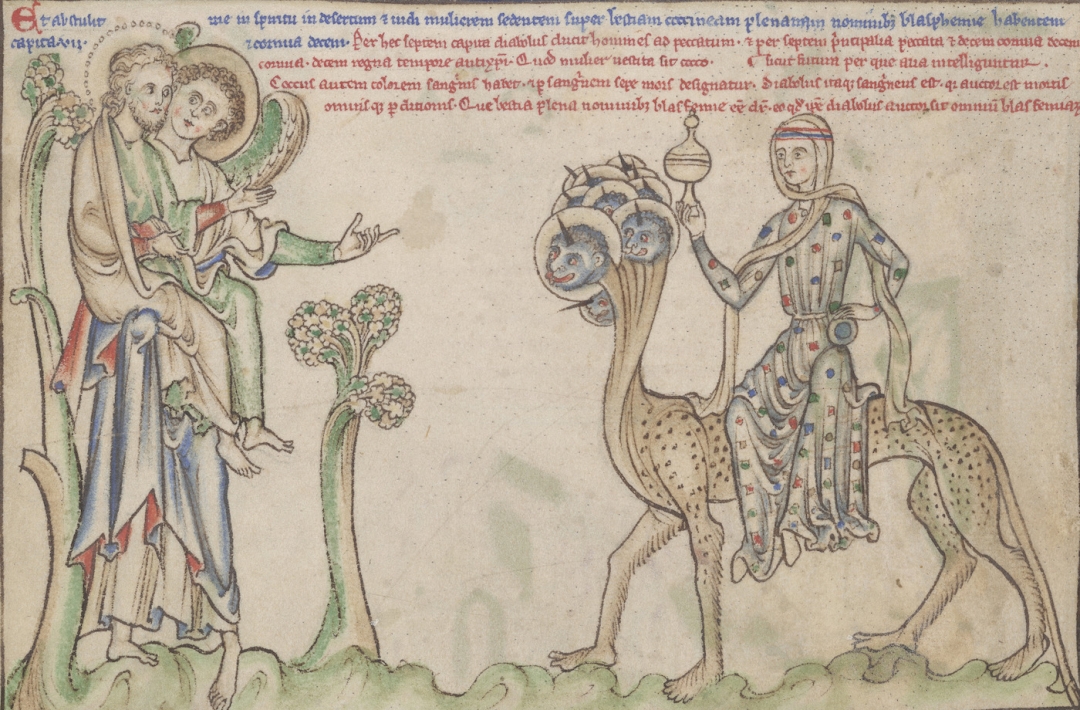 Et abstulit me in spiritu in desertum & uidi mulierem sedentem super bestiam coccineam plenam nominibꝫ blasphemie habentem
capita .vii. & cornua decem. Per hec septem capita diabolus ducit homines ad peccatum. & per septem p̃ncipalia peccata & decem cornua decem
cornua. decem regna tempore antixp̃i. Quod mulier uestita sit cocco. sicut futura per que alia intelliguntur.
Coccus autem colorem sang̃nis habet. & p sang̃nem sepe mors designatur. Diabolus itaqꝫ sang̃neus est. qi auctor est mortis
omnisqꝫ pditionis. Que bestia plena nominibꝫ blasfemie diabolus auctor sit omniũ blasfemiaꝝ